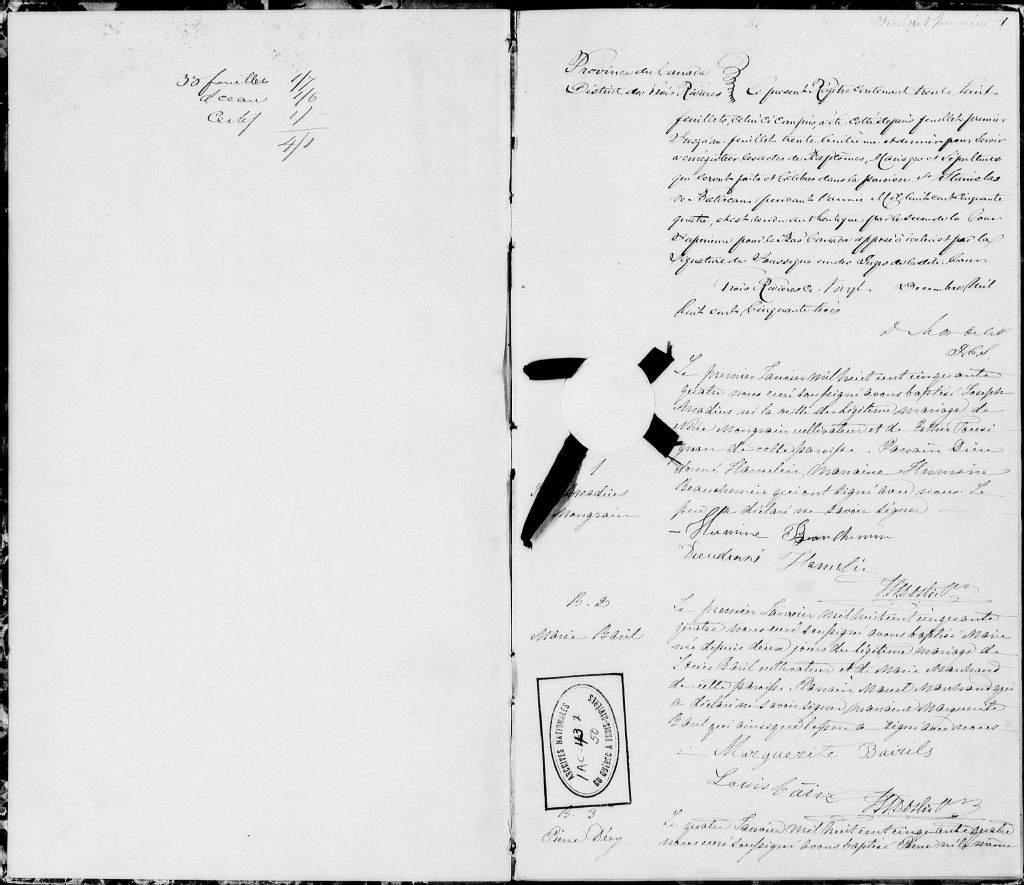 30 feuillets 1/7
Sceau 1/6
Certif 1/-
4/1
Feuillet premier 1
Province du Canada
District des Trois Rivières
Le present Régitre contenant trente huit
feuillets, celui ci compris, a été cotté depuis feuillet premier
jusqu'au feuillet trente huitième et dernier pour servir
a enrégistrer les actes de Baptêmes, Mariages et Sépultures
qui seront faits et célébrés dans la paroisse St Stanislas
de Batiscan, pendant l'année Mil huit cent cinquante
quatre, et est devenu authentique par le sceau de la Cour
Supérieure pour le Bas Canada apposé à icelui et par la
Signature du Soussigné un des Juges de la dite Cour
Trois Rivières ce Vingt Decembre Mil
huit cent Cinquante trois
J.C.S.
Le premier Janvier mil huit cent cinquante
quatre nous curé soussigné avons baptisé Joseph
Arcadius né la veille du légitime mariage de
Mongrain cultivateur et de Esther
de cette paroisse. Parrain Dieu
donné Hamelin, Marraine Hermine
Beauchemin qui ont signé avec nous. Le
père a déclaré ne savoir signer
1
Arcadius
Mongrain
Hermine Beauchemin
Dieudonné Hamelin
B. 2
Marie Baril
Le premier Janvier mil huit cent cinquante
quatre nous curé soussigné avons baptisé Marie
née depuis deux jours du légitime mariage de
Louis Baril cultivateur et de Marie Marchand
de cette paroisse. Parrain Marcel Marchand qui
a déclaré ne savoir signer, marraine Marguerite
Baril qui ainsi que le père a signé avec nous
Marguerite Barils
Louis
ARCHIVES NATIONALES
1AC-43 2
50
DU QUÉBEC À TROIS-RIVIÈRES
B. 3
Pierre Déry
Le quatre Janvier mil huit cent cinquante quatre
nous curé soussigné avons baptisé Pierre né le même